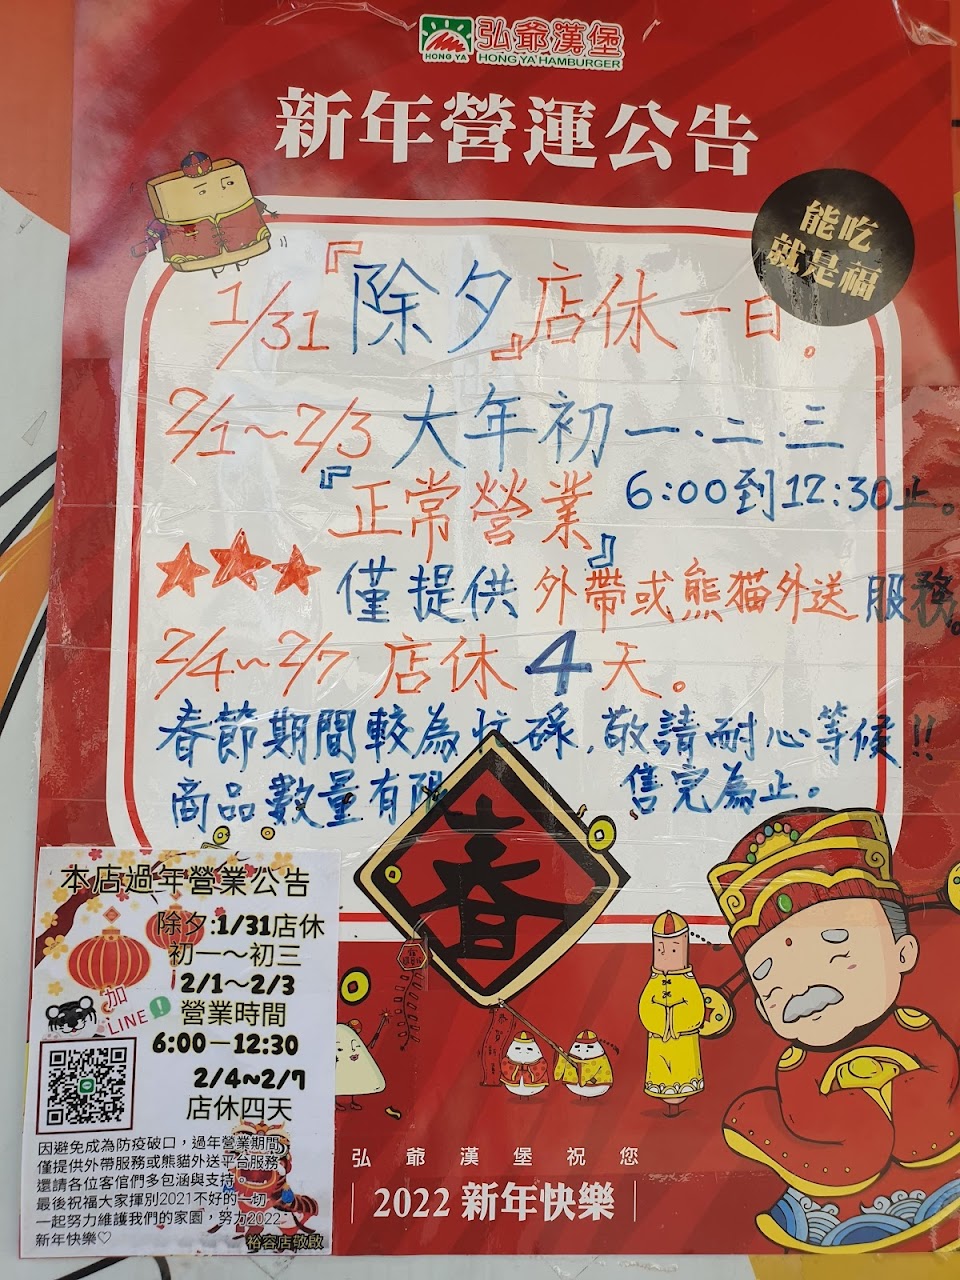 弘爺漢堡
HONG YA
HONG YA HAMBURGER
新年營運公告
能吃
就是福
1/31『除夕』店休一日。
2/1~2/3 大年初一、二、三
『正常營業』6:00到12:30止。
★★★僅提供外帶或熊猫外送服務。
2/4~2/7 店休4天。
春節期間較為忙碌,敬請耐心等候!!
商品數量有限 售完為止。
春
本店過年營業公告
除夕:1/31店休
初一~初三
2/1~2/3
加
LINE
營業時間
6:00-12:30
2/4~2/7
店休四天
因避免成為防疫破口,過年營業期間
僅提供外帶服務或熊猫外送平台服務
還請各位客倌們多包涵與支持。
最後祝福大家揮別2021不好的一切
一起努力維護我們的家園,努力2022
新年快樂♡
裕容店敬啟
弘爺漢堡祝您
2022 新年快樂